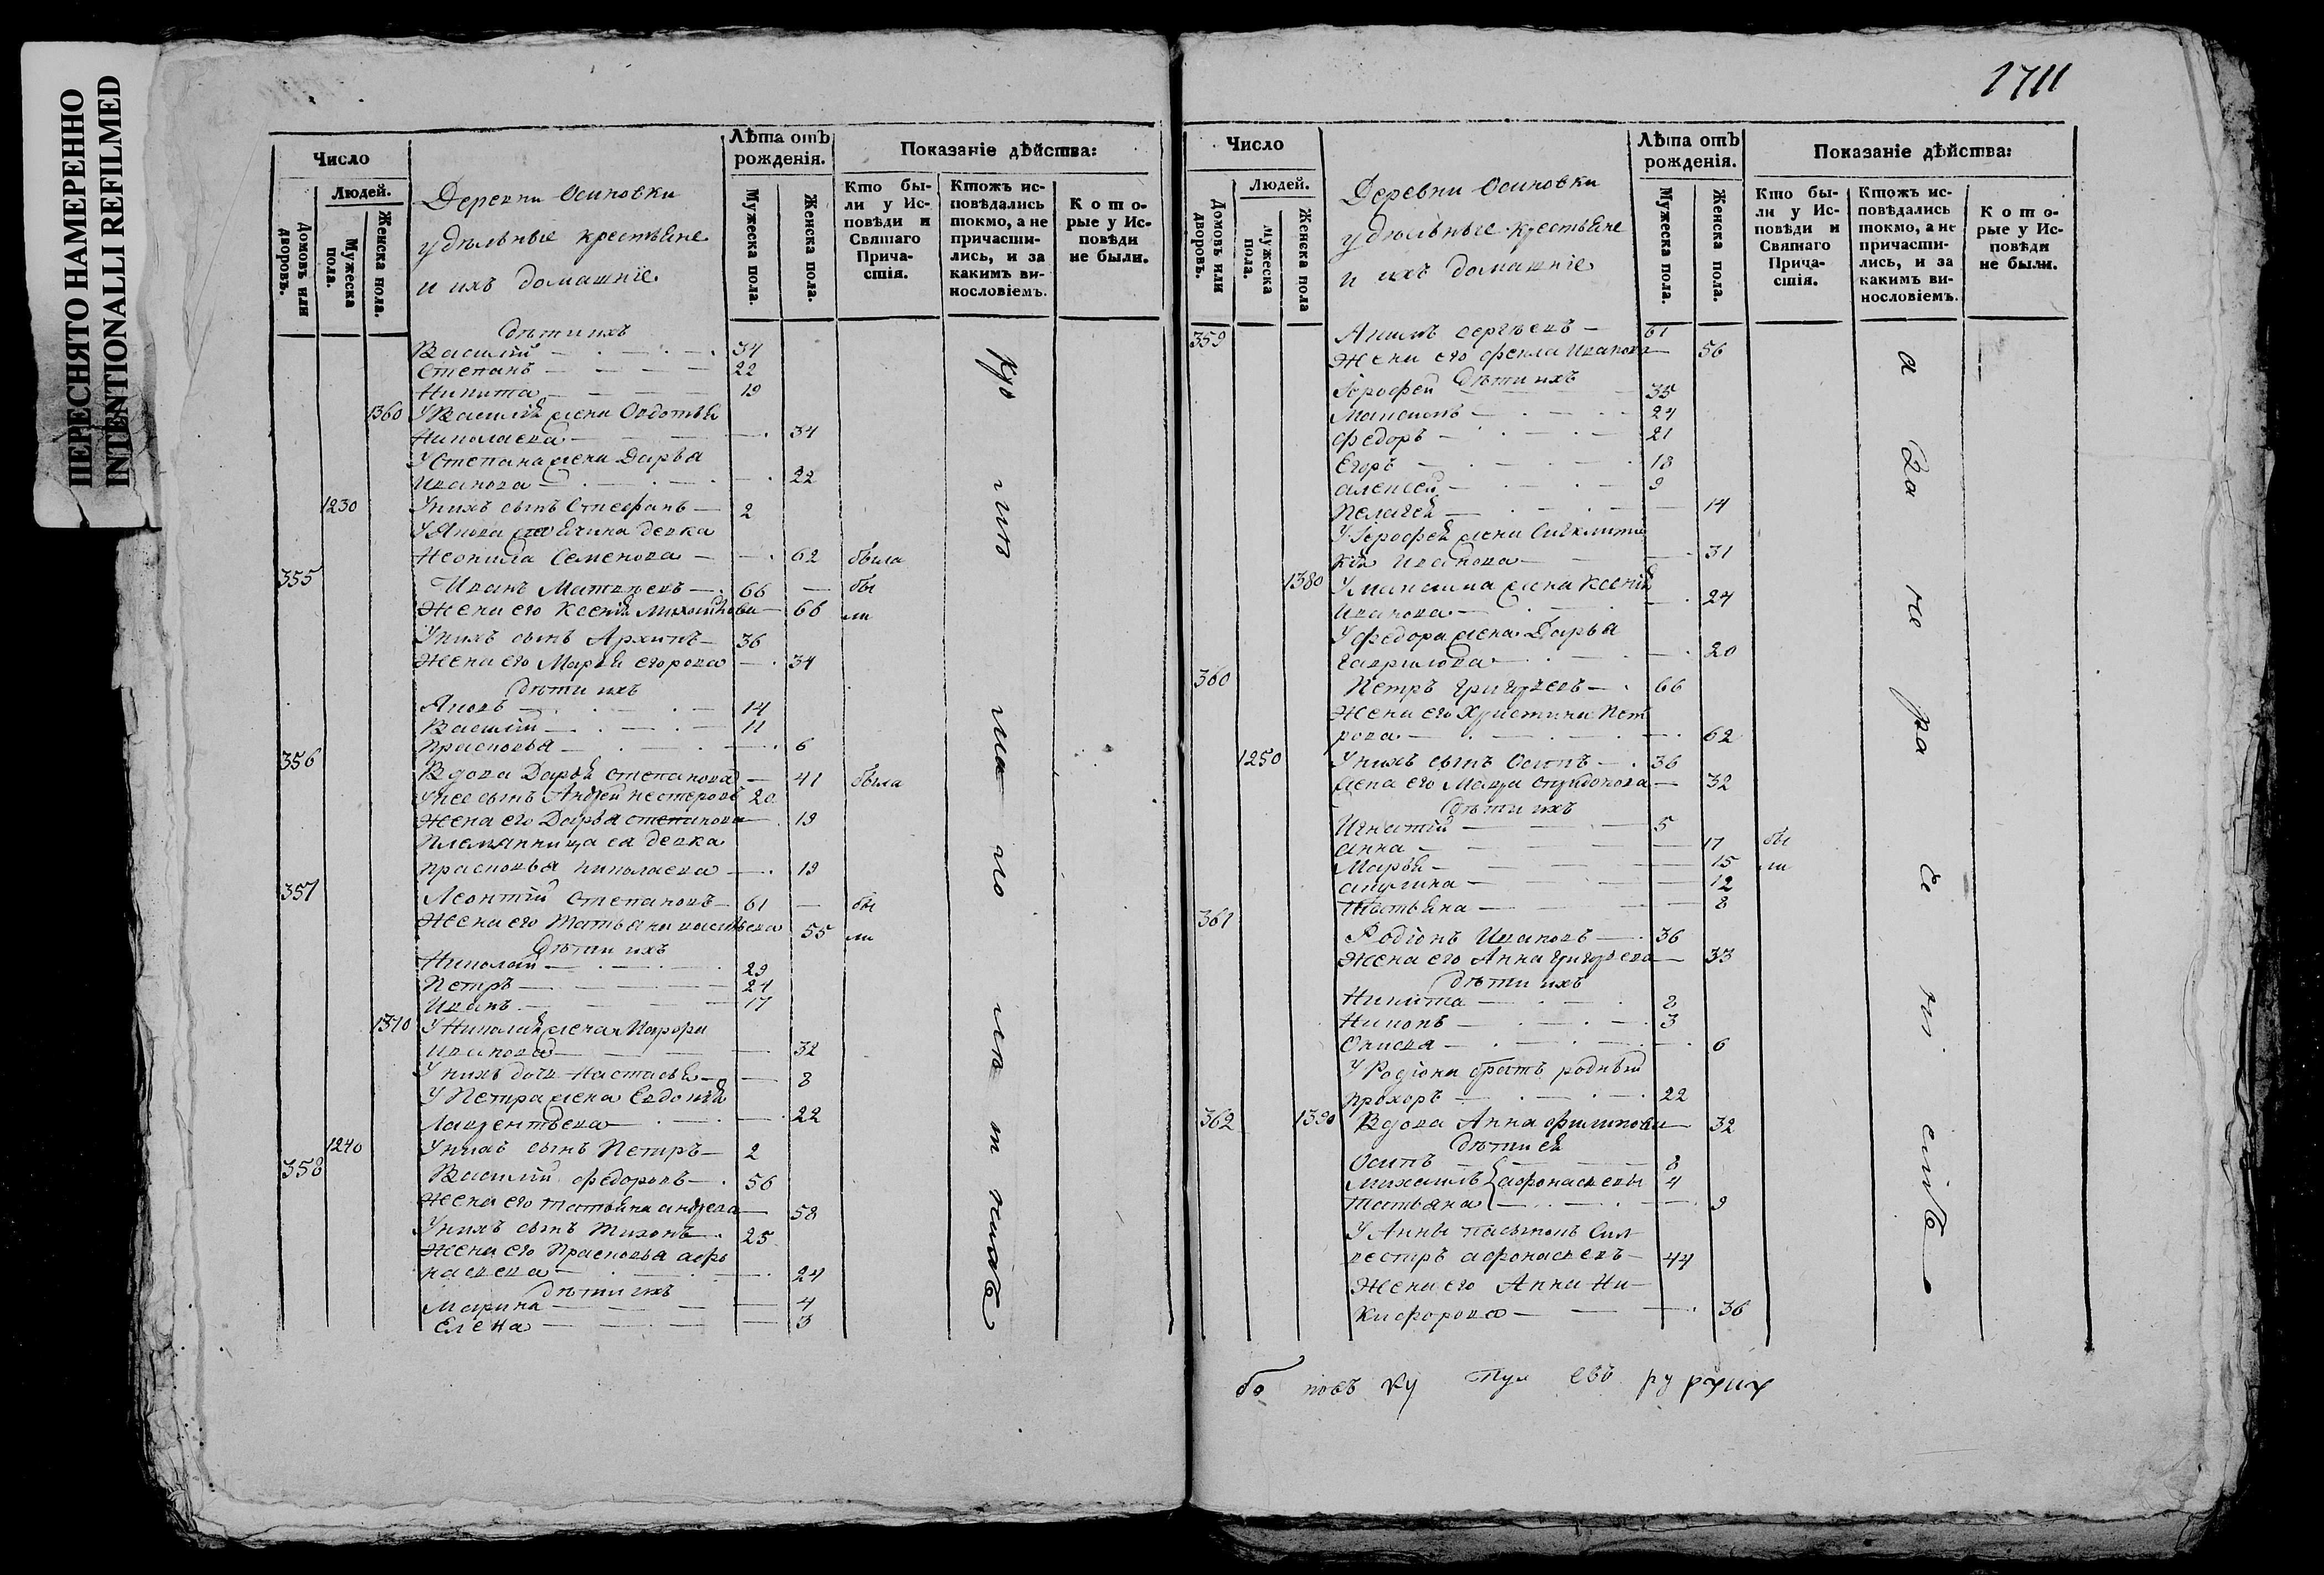 ПЕРЕСНЯТО НАМЕРЕННО
INTENTIONALLI REFILMED
Число
Людей.
Домовъ или дворовъ.
Мужеска пола.
Женска пола.
Деревни Осиновки
удѣльные крестьяне
и ихъ домашніе
Лѣта отъ рожденія.
Мужеска пола.
Женска пола.
Показаніе дѣйства:
Кто были у Исповѣди и Святаго Причастія.
Ктожъ исповѣдались токмо, а не причастились, и за какимъ винословіемъ.
Которые у Исповѣди не были.
Дѣти ихъ
Василій 34
Степанъ 22
Никита 19
1360 У Василья жена Овдотья
Николаева 34
У Степана жена Дарья
Иванова 22
1230 У нихъ сынъ Стефанъ 2
У Якова девка
Неонила Семенова 62 была
355 Иванъ Матвѣевъ 66 бы
Жена его Ксенія 66 ли
У нихъ сынъ Архипъ 36
Жена его Марья Егорова 34
Дѣти ихъ
Яковъ 14
Василій 11
Прасковья 6
356 Вдова Дарья Степанова 41 была
У нее сынъ Андрей Нестеровъ 20
Жена его Дарья Степанова 19
Племянница ея девка
Прасковья Николаева 19
357 Леонтій Степановъ 61 бы
Жена его Татьяна Васильева 55 ли
Дѣти ихъ
Николай 29
Петръ 24
Иванъ 17
1370 У Николая жена
Иванова 32
У нихъ дочь Настасья 8
У Петра жена Евдокія
Лаврентьева 22
1240 У нихъ сынъ Петръ 2
358 Василій Федоровъ 56
Жена его Татьяна Андреева 58
У нихъ сынъ Тихонъ 25
Жена его Прасковья Афо
насьева 24
Дѣти ихъ
Марина 4
Елена 3
1711
Число
Людей.
Домовъ или дворовъ.
Мужеска пола.
Женска пола
Деревни Осиновки
удѣльные крестьяне
и ихъ домашніе
Лѣта отъ рожденія.
Мужеска пола.
Женска пола.
Показаніе дѣйства:
Кто были у Исповѣди и Святаго Причастія.
Ктожъ исповѣдались токмо, а не причастились, и за какимъ винословіемъ.
Которые у Исповѣди не были.
359 Сергѣевъ 61
Жена его Фекла Иванова 56
Дѣти ихъ
Ерофей 35
Максимъ 24
Федоръ 21
Егоръ 18
Алексей 9
Пелагея 14
У Ерофея жена
Иванова 31
1380 У Максима жена Ксенія
Иванова 24
У Федора жена Дарья
Гаврилова 20
360 Петръ Григорьевъ 66
Жена его Христина Пет
рова 62
1250 У нихъ сынъ Осипъ 36
жена его Спиридонова 32
Дѣти ихъ
Игнатій 5
Анна 17 бы
Марья 15 ли
Акулина 12
Татьяна 8
361 Родіонъ Ивановъ 36
Жена его Анна Григорьева 33
Дѣти ихъ
Никита 8
Никонъ 3
6
У Родіона братъ родный
Прохоръ 22
362 1390 Вдова Анна Филипова 32
Дѣти ея
Осипъ 8
Михаилъ Афонасьевы 4
Татьяна 9
У Анны пасынокъ Сил
вестръ Афонасьевъ 44
Жена его Анна Ни
кифорова 36